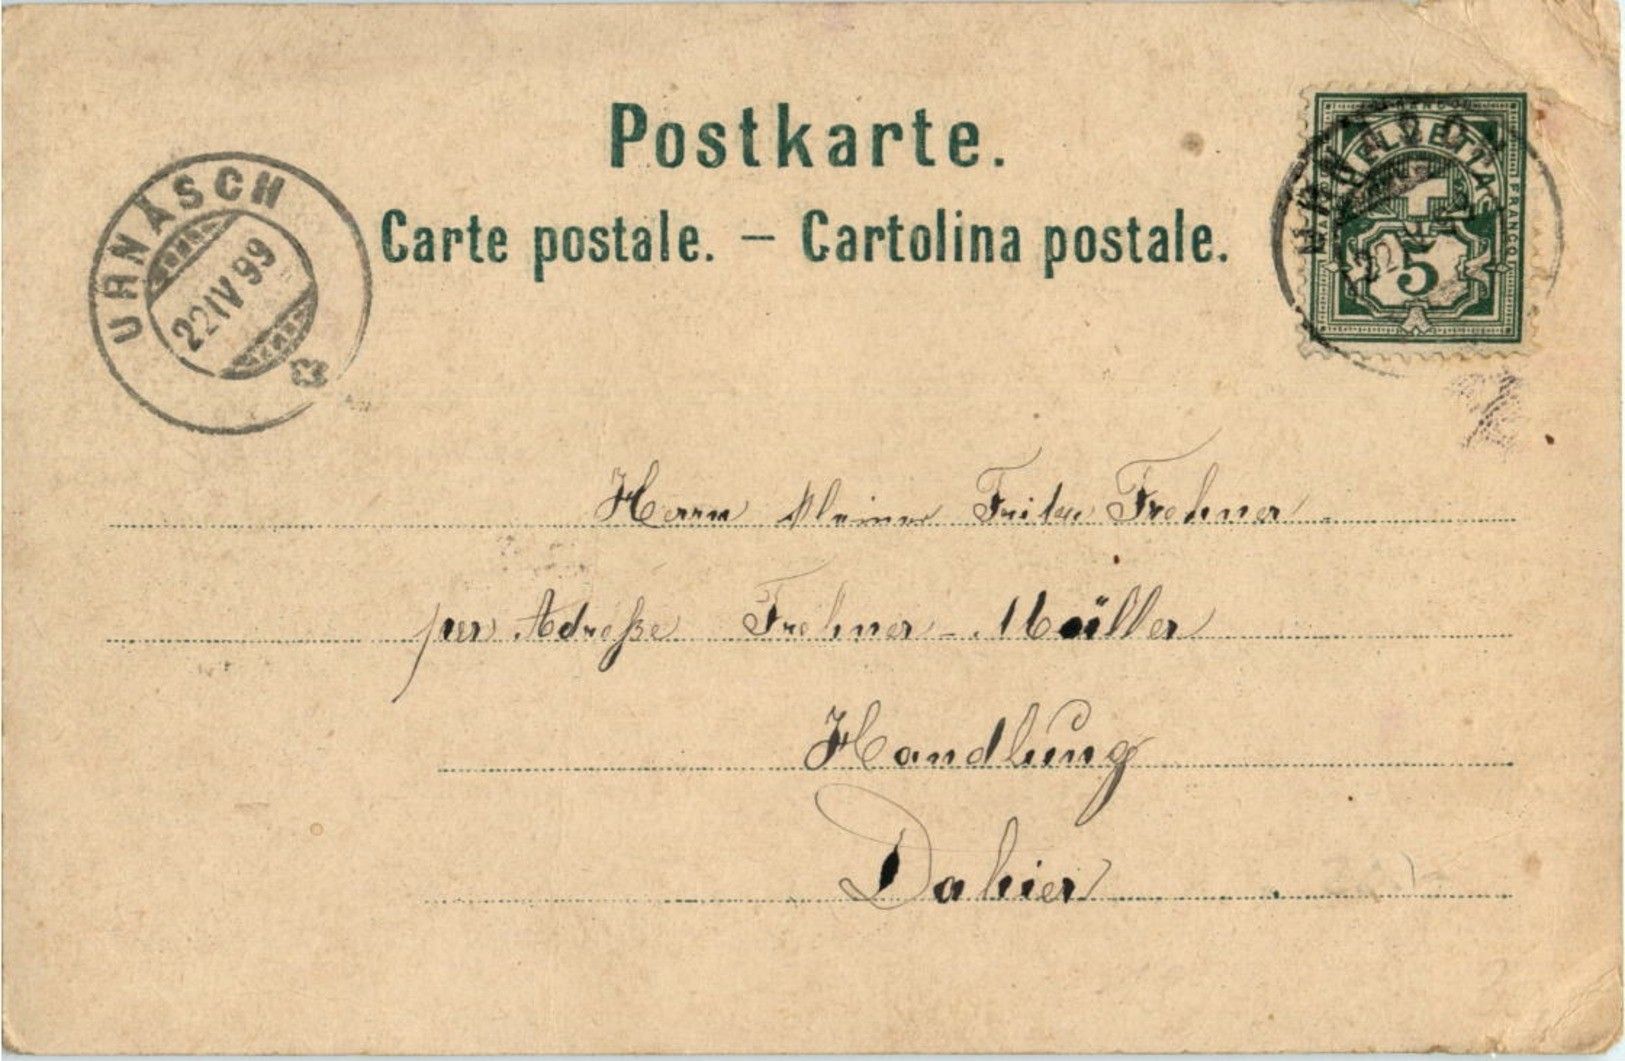 Postkarte.
Carte postale. – Cartolina postale.
URNÄSCH
22 IV 99
FRANCO
HELVETIA
FRANCO
5
Herrn kleiner Fritz Frehner
per Adreße Frehner-Müller
Handlung
Dahier